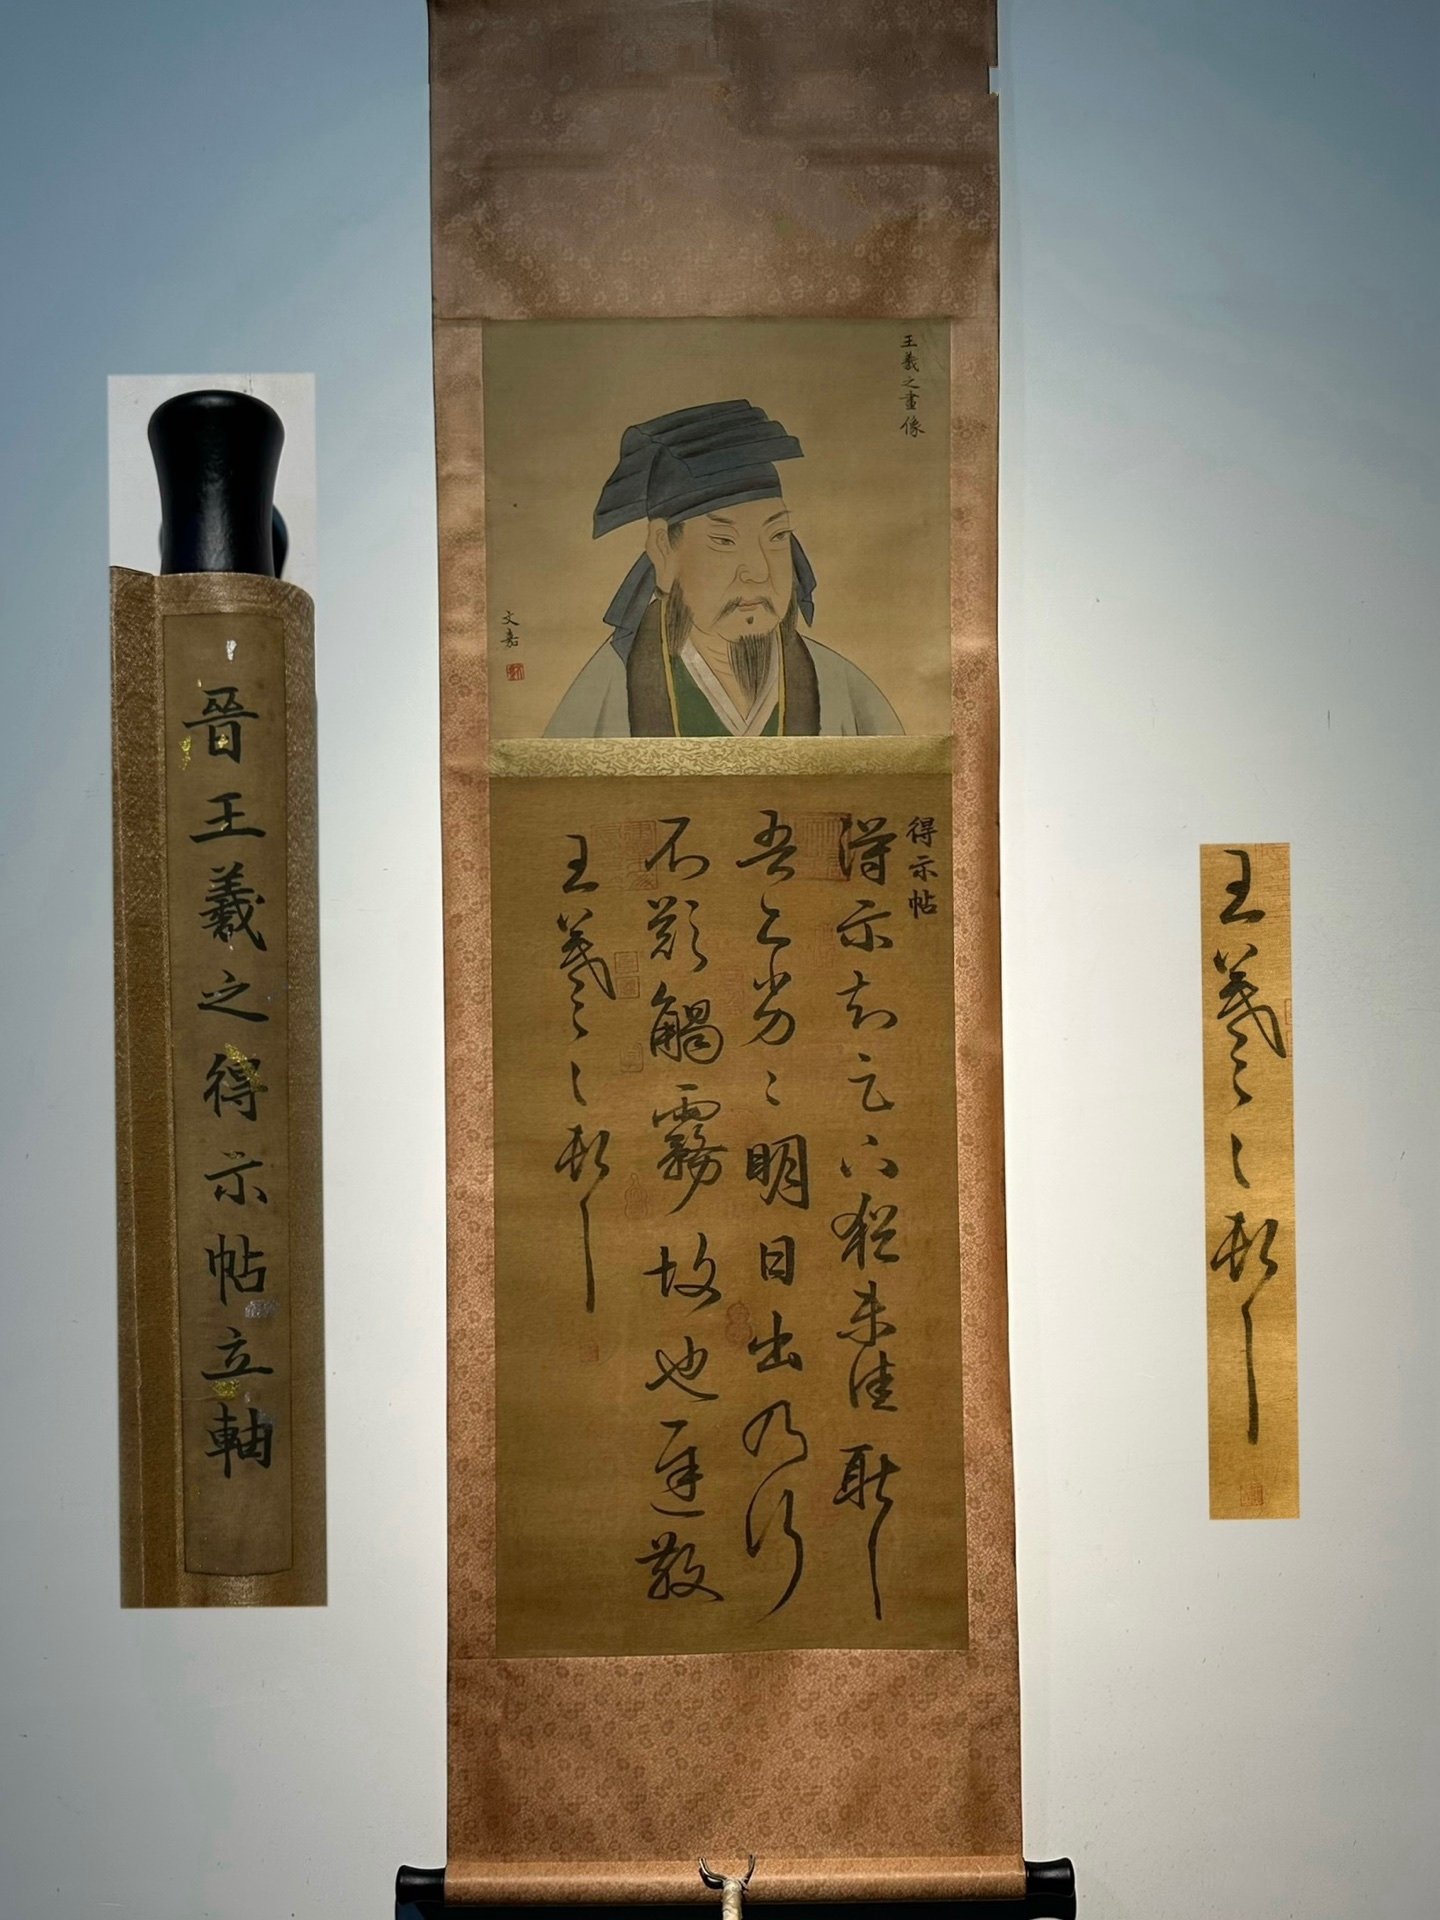 晉王羲之得示帖立軸
王羲之畫像
文嘉
得示帖
得示知足下猶未佳耿耿
吾亦劣劣明日出乃行
不欲觸霧故也遲散
王羲之頓首
王羲之頓首